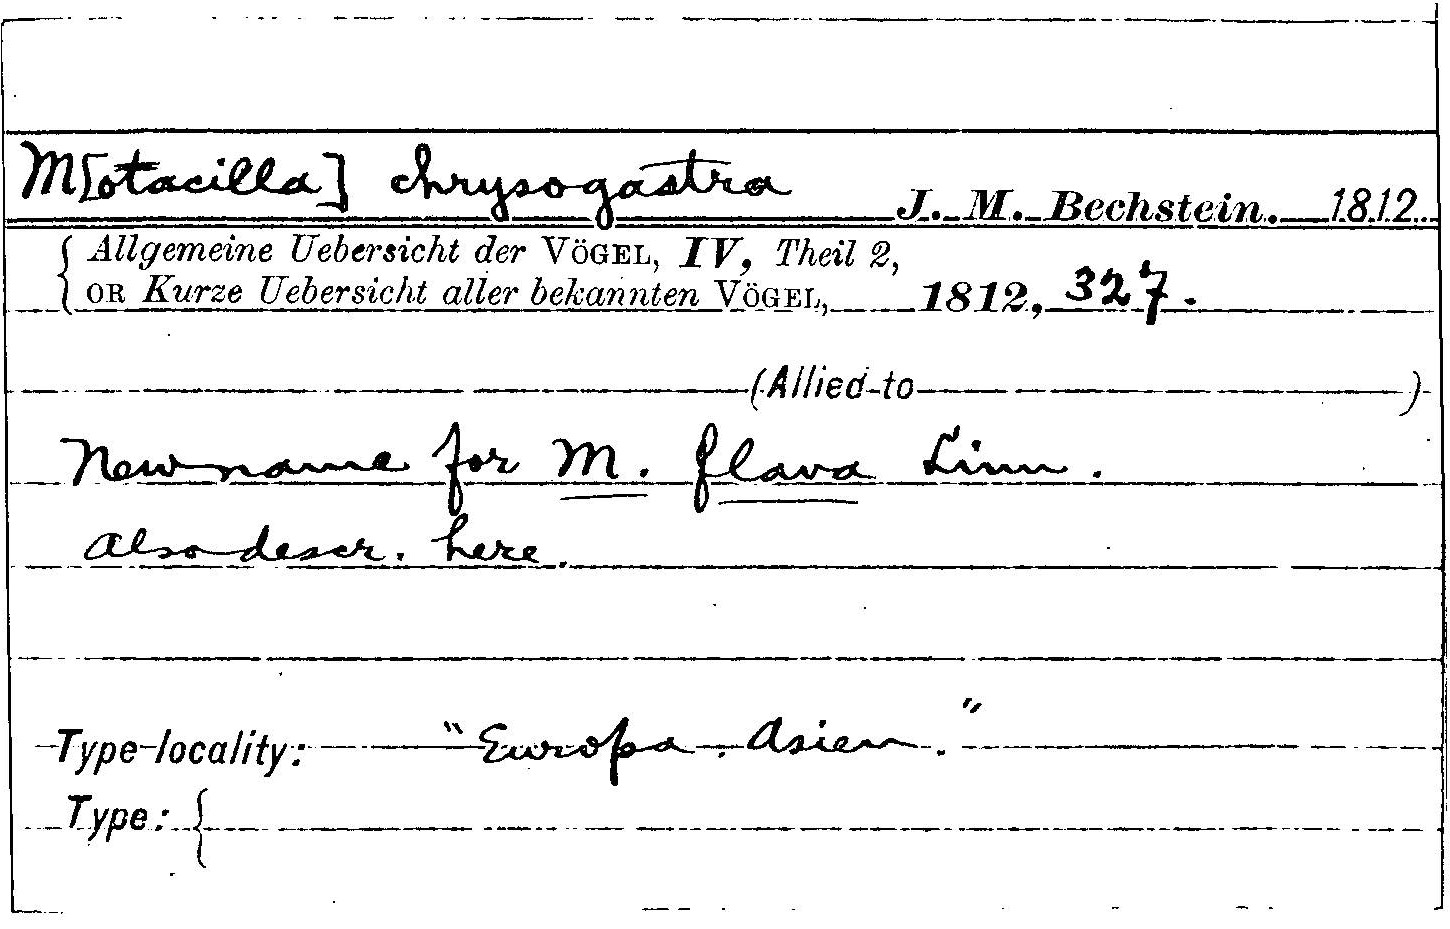 M[otacilla] chrysogastra J. M. Bechstein. 1812
Allgemeine Uebersicht der VÖGEL, IV, Theil 2,
OR Kurze Uebersicht aller bekannten VÖGEL, 1812, 327.
(Allied to )
New name for M. flava Linn.
Also descr. here.
Type locality: "Europa. Asien."
Type: